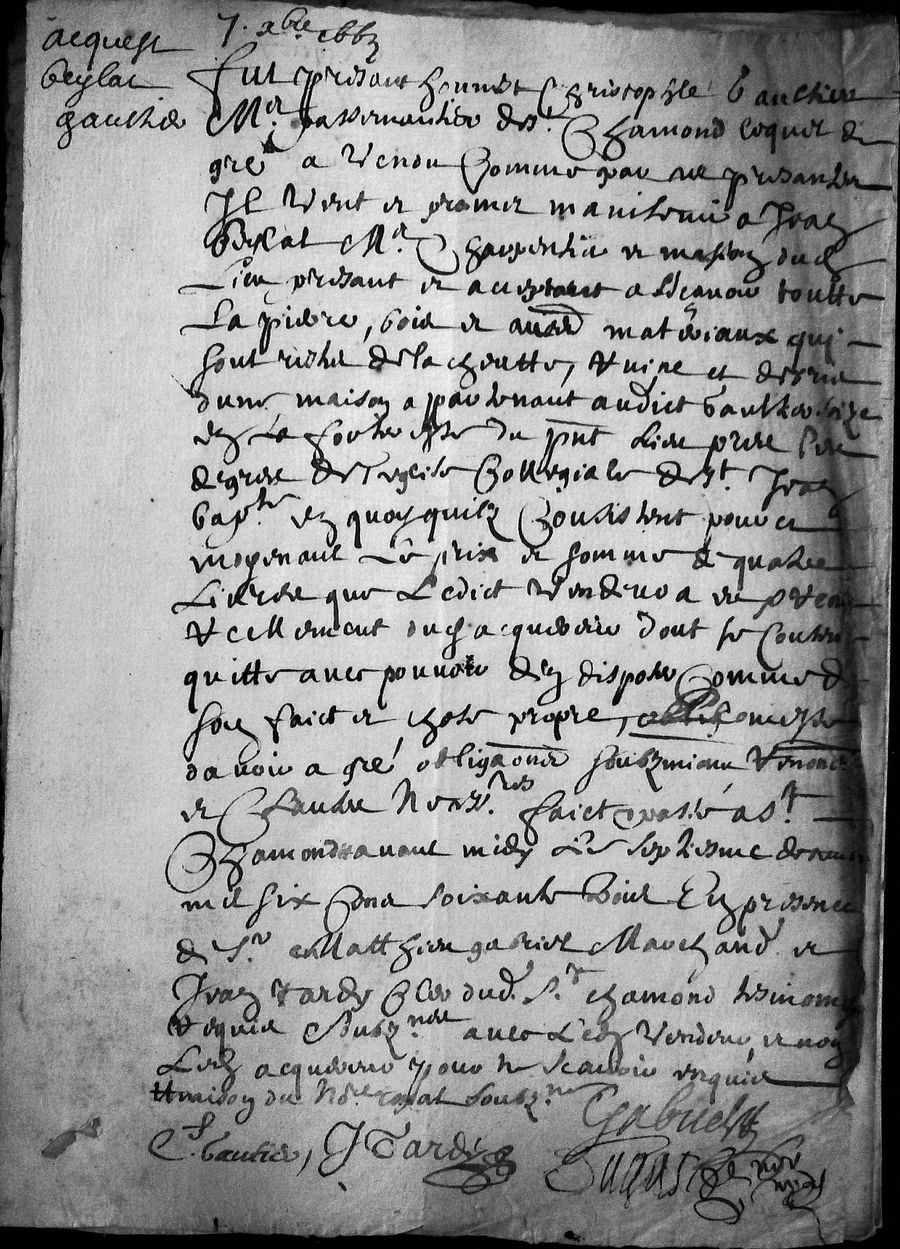 acquest
beylat
gaultier
7. xbre 1663
fut présant honnest Christophle Gaultier
Mr. passementier de St. Chamond lequel de
gré a vendu comme par ces presantes
Il vent et promet maintenir a Jean
Beylat Mr. Charpentier et masson dud
Lieu présant et acceptant a sçavoir toutte
La pierre, bois et autres matériaux qui
sont restes de la cheutte, ruine et debris
dune maison appartenant audict Gaultier size
en La forteresse du pnt Lieu pres les
degres de l'eglise Collegiale de St. Jean
bapte. en quoy quilz Consistent pour et
moyenant Le prix et somme de quatre
Livres que Ledict vendeur a
reellement dud acquereur dont se Contente
quitte avec pouvoir den disposer Comme de
son faict et chose propre, promesse
davoir a gré obligaons soubzmions renonons
et Clauses necessres. faict et passé a St.
Chamond avant midy Le septiesme
mil six cens soixante trois En presence
de Sr. Matthieu gabriel Marchand et
Jean Tardy Clerc dud. St. chamond tesmoins
requis soubznes avec Led vendeur et non
Led acquereur pour ne scavoir enquis
Me royal soubzne
C. Gaultier, J Tardy
Gabriel
Dugas